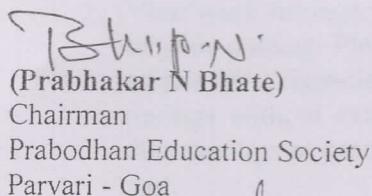 (Prabhakar N Bhate)
Chairman
Prabodhan Education Society
Parvari - Goa